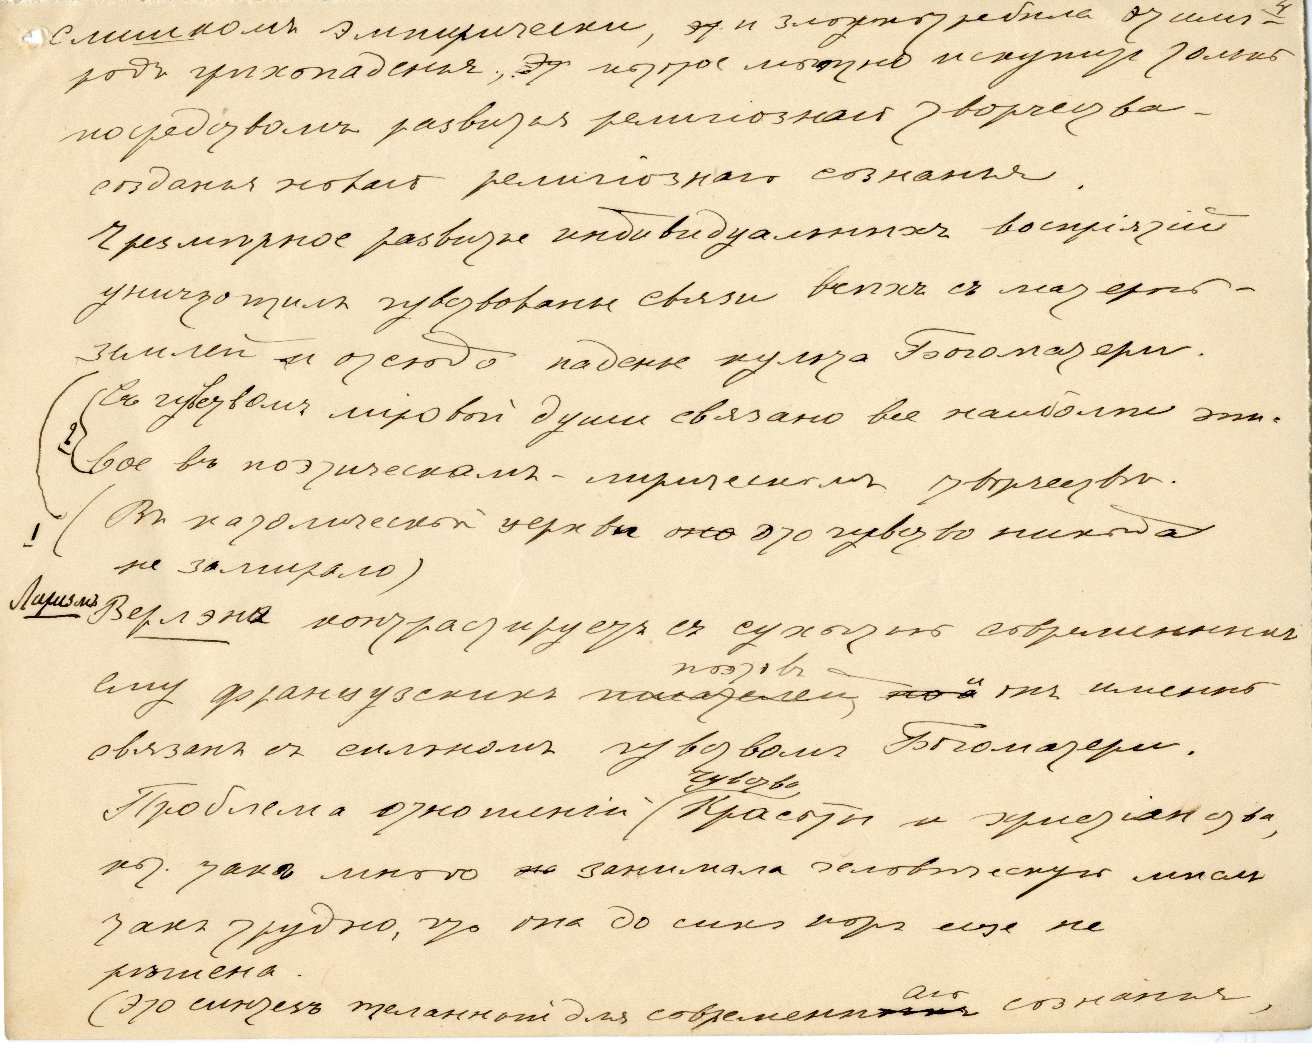 слишкомъ эмпирически, и злоупотребила этимъ
родъ грихопаденья, которое можно искупить только
посредствомъ развитья религіознаго творчества -
созданья новаго религіознаго сознанья.
Чрезмѣрное развитье индивидуальныхъ воспріятій
уничтожили чувствованье связи всѣхъ съ матерью -
землей и отсюдо паденье культа Богоматери.
Съ чувствомъ міровой души связано все наиболѣе жи-
2
вое въ поэтическомъ - лирическомъ творчествѣ.
(Въ католической церкви оно это чувство никогда
1
не замирало)
Лиризмъ Верлэна контрастируетъ съ сухостью современныхъ
поэтовъ -
ему французскихъ писателей, онъ именно
связанъ съ сильномъ чувствомъ Богоматери.
чувство
Проблема отношеній (Красоты и христіанства,
кот. такъ много занимала человѣческую мысль
такъ трудно, что она до сихъ поръ еще не
рѣшена.
аго
(это синтезъ желанный для современн сознанья,